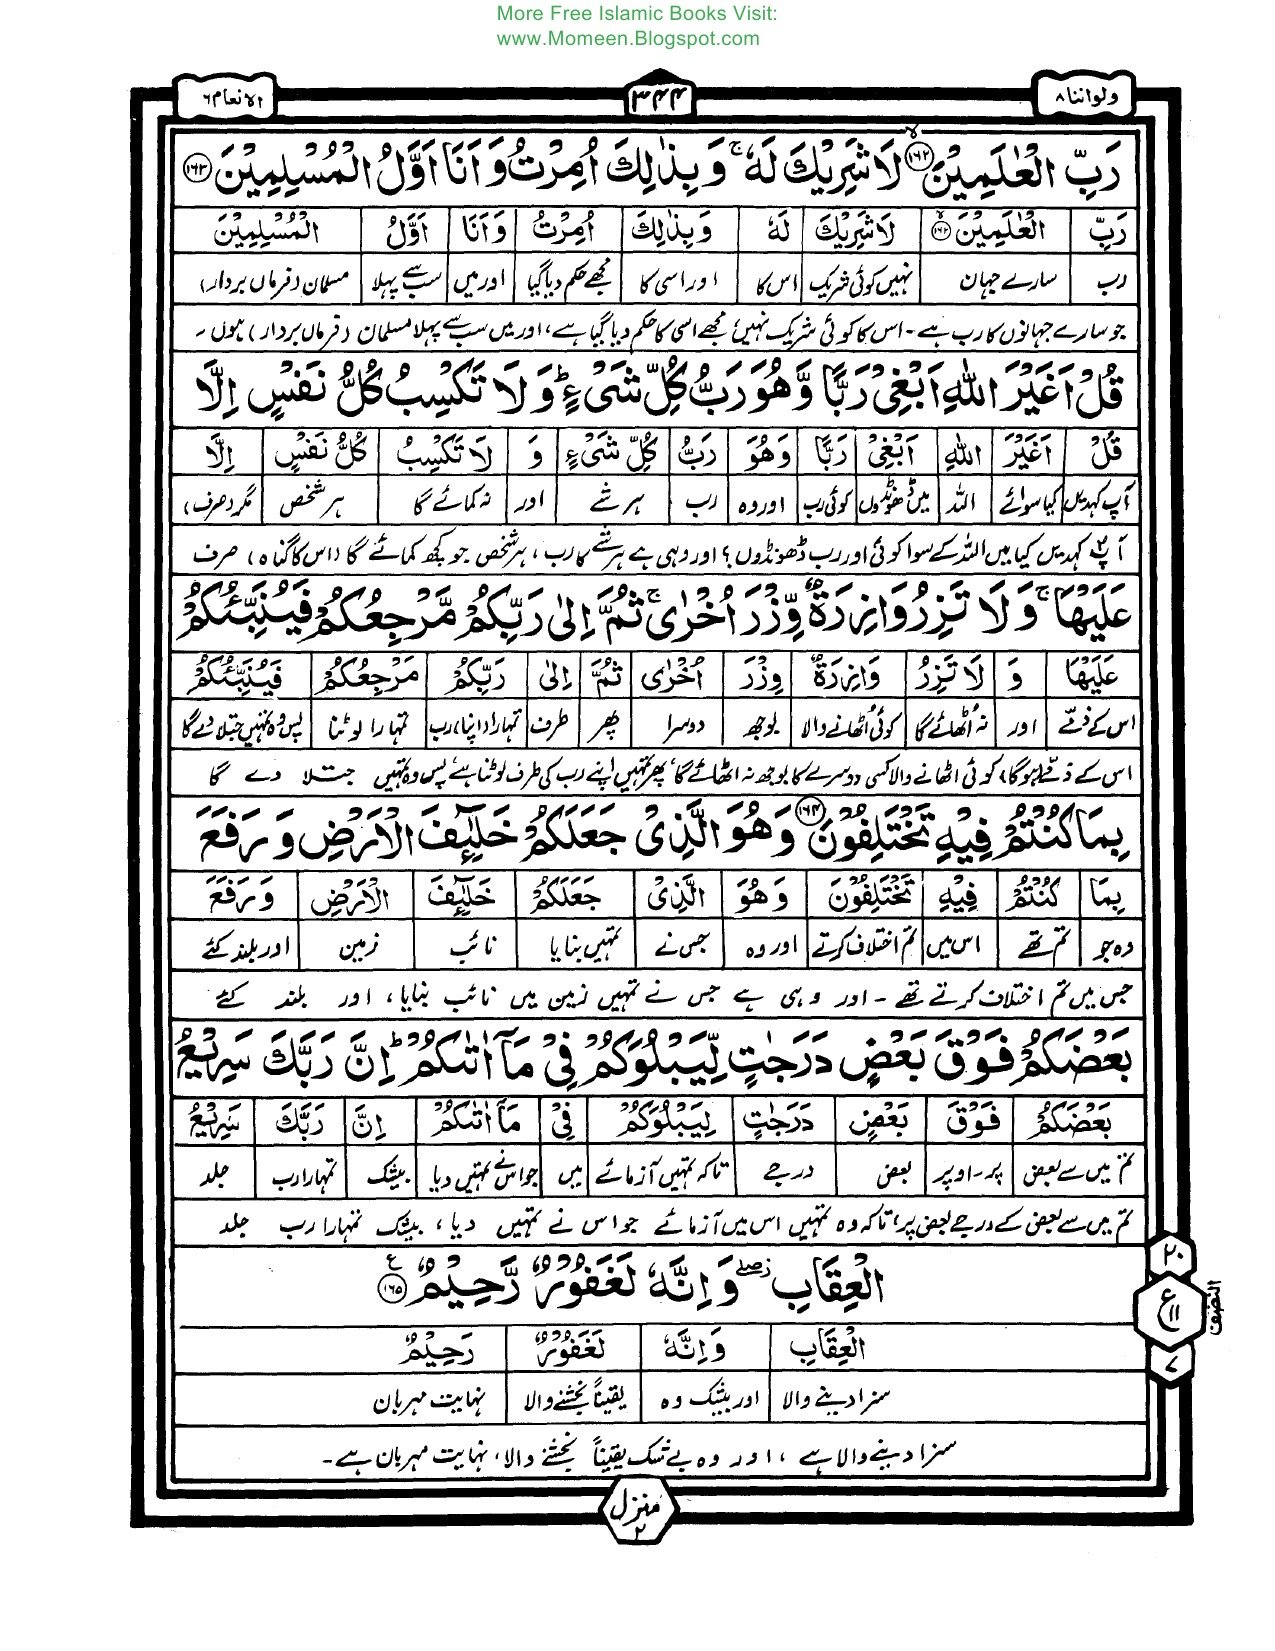 More Free Islamic Books Visit:
www.Momeen.Blogspot.com
ولواننا ۸
۳۴۴
الانعام ۶
رَبِّ الْعٰلَمِيْنَ ۱۶۲ لَا شَرِيْكَ لَهٗ ۚ وَ بِذٰلِكَ اُمِرْتُ وَ اَنَا اَوَّلُ الْمُسْلِمِيْنَ ۱۶۳
رَبِّ الْعٰلَمِيْنَ ۱۶۲ لَا شَرِيْكَ لَهٗ وَ بِذٰلِكَ اُمِرْتُ وَ اَنَا اَوَّلُ الْمُسْلِمِيْنَ
رب سارے جہان نہیں کوئی شریک اس کا اور اسی کا مجھے حکم دیا گیا اور میں سب سے پہلا مسلمان (فرماں بردار)
جو سارے جہانوں کا رب ہے۔ اس کا کوئی شریک نہیں، مجھے اسی کا حکم دیا گیا ہے، اور میں سب سے پہلا مسلمان (فرماں بردار) ہوں۔
قُلْ اَغَيْرَ اللّٰهِ اَبْغِيْ رَبًّا وَّ هُوَ رَبُّ كُلِّ شَيْءٍ ؕ وَ لَا تَكْسِبُ كُلُّ نَفْسٍ اِلَّا
قُلْ اَغَيْرَ اللّٰهِ اَبْغِيْ رَبًّا وَّ هُوَ رَبُّ كُلِّ شَيْءٍ وَ لَا تَكْسِبُ كُلُّ نَفْسٍ اِلَّا
آپ کہدیں کیا سوائے اللہ میں ڈھونڈوں کوئی رب اور وہ رب ہر شے اور نہ کمائے گا ہر شخص مگر (صرف)
آپ کہدیں کیا میں اللہ کے سوا کوئی اور رب ڈھونڈوں؟ اور وہی ہے ہر شے کا رب، ہر شخص جو کچھ کمائے گا (اس کا گناہ) صرف
عَلَيْهَا ۚ وَ لَا تَزِرُ وَازِرَةٌ وِّزْرَ اُخْرٰى ۚ ثُمَّ اِلٰى رَبِّكُمْ مَّرْجِعُكُمْ فَيُنَبِّئُكُمْ
عَلَيْهَا وَ لَا تَزِرُ وَازِرَةٌ وِزْرَ اُخْرٰى ثُمَّ اِلٰى رَبِّكُمْ مَرْجِعُكُمْ فَيُنَبِّئُكُمْ
اس کے ذمے اور نہ اٹھائے گا کوئی اٹھانے والا بوجھ دوسرا پھر طرف تمہارا (اپنا) رب تمہارا لوٹنا پس وہ تمہیں جتلا دے گا
اس کے ذمے ہوگا، کوئی اٹھانے والا کسی دوسرے کا بوجھ نہ اٹھائے گا، پھر تمہیں اپنے رب کی طرف لوٹنا ہے، پس وہ تمہیں جتلا دے گا
بِمَا كُنْتُمْ فِيْهِ تَخْتَلِفُوْنَ ۱۶۴ وَ هُوَ الَّذِيْ جَعَلَكُمْ خَلٰٓئِفَ الْاَرْضِ وَ رَفَعَ
بِمَا كُنْتُمْ فِيْهِ تَخْتَلِفُوْنَ وَ هُوَ الَّذِيْ جَعَلَكُمْ خَلٰٓئِفَ الْاَرْضِ وَ رَفَعَ
وہ جو تم تھے اس میں تم اختلاف کرتے اور وہ جس نے تمہیں بنایا نائب زمین اور بلند کئے
جس میں تم اختلاف کرتے تھے۔ اور وہی ہے جس نے تمہیں زمین میں نائب بنایا، اور بلند کئے
بَعْضَكُمْ فَوْقَ بَعْضٍ دَرَجٰتٍ لِّيَبْلُوَكُمْ فِيْ مَاۤ اٰتٰىكُمْ ؕ اِنَّ رَبَّكَ سَرِيْعُ
بَعْضَكُمْ فَوْقَ بَعْضٍ دَرَجٰتٍ لِيَبْلُوَكُمْ فِيْ مَاۤ اٰتٰىكُمْ اِنَّ رَبَّكَ سَرِيْعُ
تم میں سے بعض پر۔ اوپر بعض درجے تاکہ تمہیں آزمائے میں جو اس نے تمہیں دیا بیشک تمہارا رب جلد
تم میں سے بعض کے درجے بعض پر، تاکہ وہ تمہیں اس میں آزمائے جو اس نے تمہیں دیا، بیشک تمہارا رب جلد
الْعِقَابِ ۖ وَ اِنَّهٗ لَغَفُوْرٌ رَّحِيْمٌ ۱۶۵
الْعِقَابِ وَ اِنَّهٗ لَغَفُوْرٌ رَحِيْمٌ
سزا دینے والا اور بیشک وہ یقیناً بخشنے والا نہایت مہربان
سزا دینے والا ہے، اور وہ بے شک یقیناً بخشنے والا، نہایت مہربان ہے۔
۲۰
ع ۱۱
۷
النصف
منزل ۲